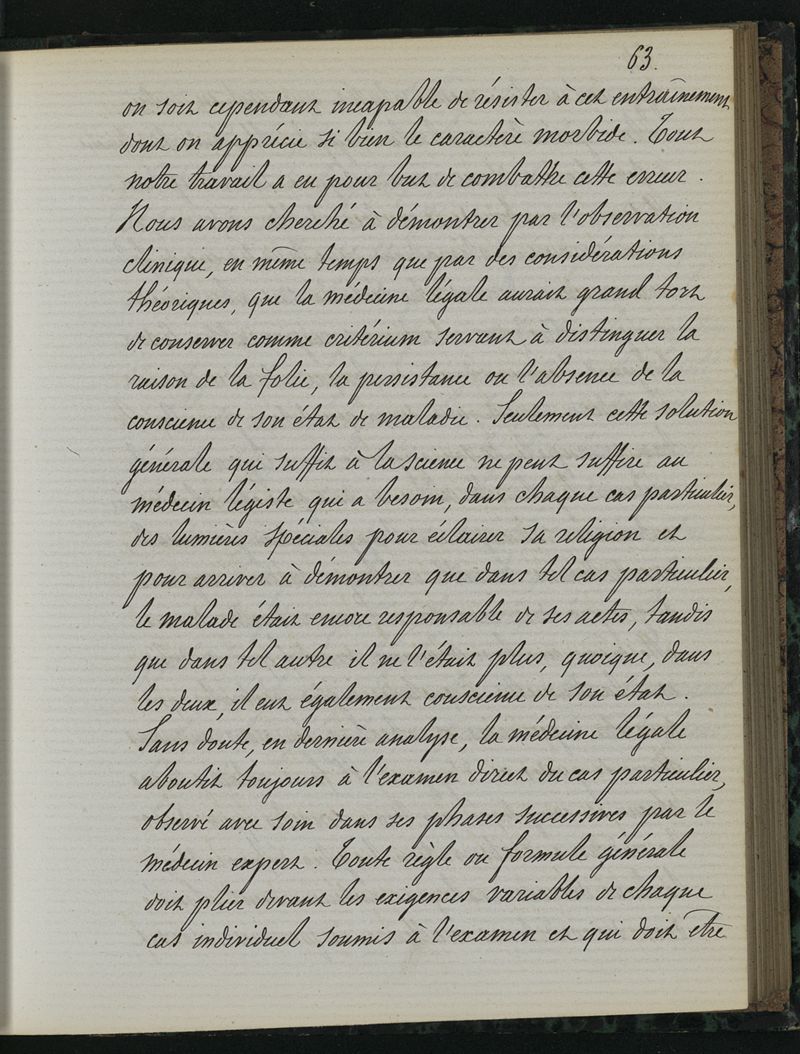 63.
on soit cependant incapable de résister à cet entraînement
dont on apprécie si bien le caractère morbide. Tout
notre travail a eu pour but de combattre cette erreur.
Nous avons cherché à démontrer par l'observation
clinique, en même temps que par des considérations
théoriques, que la médecine légale aurait grand tort
de conserver comme critérium servant à distinguer la
raison de la folie, la persistance ou l'absence de la
conscience de son état de maladie. Seulement cette solution
générale qui suffit à la science ne peut suffire au
médecin légiste qui a besoin, dans chaque cas particulier,
des lumières spéciales pour éclairer sa religion et
pour arriver à démontrer que dans tel cas particulier,
le malade était encore responsable de ses actes, tandis
que dans tel autre il ne l'était plus, quoique, dans
les deux, il eut également conscience de son état.
Sans doute, en dernière analyse, la médecine légale
aboutit toujours à l'examen direct du cas particulier,
observé avec soin dans ses phases successives par le
médecin expert. Toute règle ou formule générale
doit plier devant les exigences variables de chaque
cas individuel soumis à l'examen et qui doit être